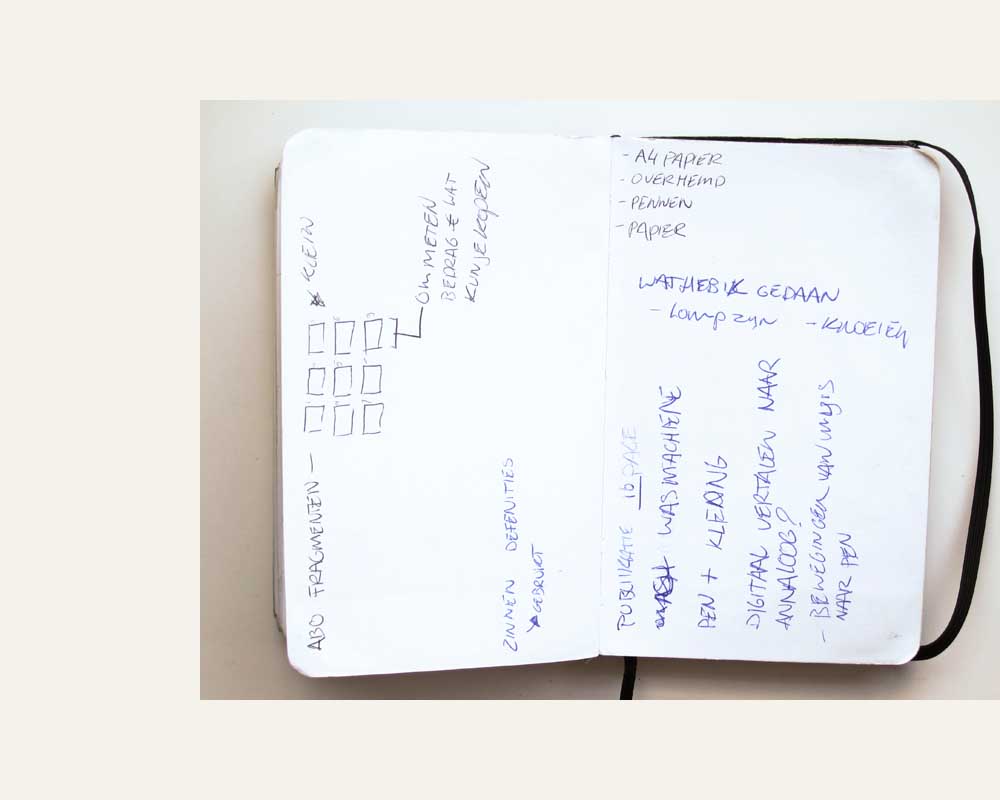 ABO FRAGMENTEN —
KLEIN
OMMETEN
BEDRAG € WAT
KUN JE KOPEN
ZINNEN DEFENITIES
GEBRUIKT
- A4 PAPIER
- OVERHEMD
- PENNEN
- PAPIER
WAT HEB IK GEDAAN
- LOMP ZIJN - KNOEIEN
PUBLIKATIE 16 PAGE
WASMACHIENE
PEN + KLEDING
DIGITAAL VERTALEN NAAR
ANNALOOG?
- BEWEGINGEN VAN MUIS
NAAR PEN